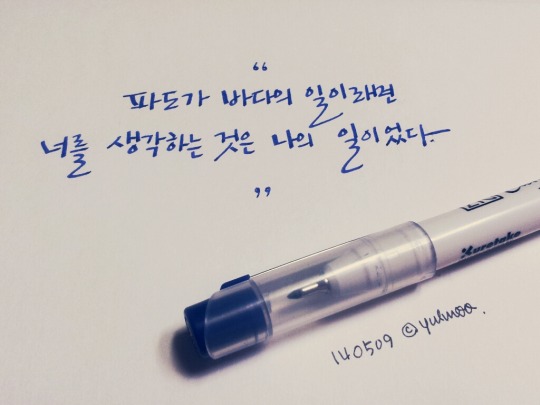 “
파도가 바다의 일이라면
너를 생각하는 것은 나의 일이었다.
”
Kuretake
140509 ©yulmoo.